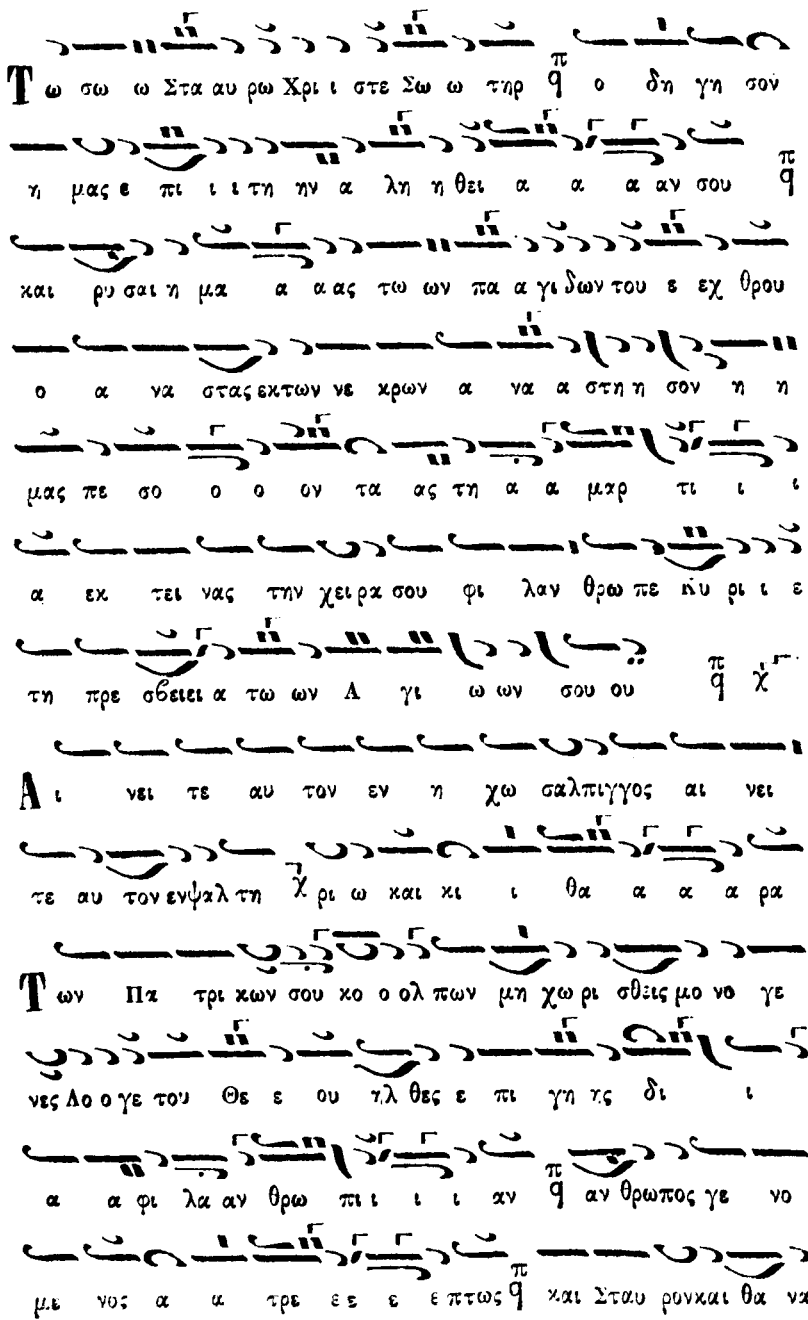 Τω σω ω Στα αυ ρω Χρι ι στε Σω ω τηρ π q ο δη γη σον
η μας ε πι ι ι τη ην α λη η θει α α α αν σου π q
και ρυ σαι η μα α α ας τω ων πα α γι δων του ε εχ θρου
ο α να στας εκ των νε κρων α να α στη η σον η η
μας πε σο ο ο ον τα ας τη α α μαρ τι ι ι
α εκ τει νας την χει ρα σου φι λαν θρω πε Κυ ρι ι ε
τη πρε σβειει α τω ων Α γι ω ων σου ου π q χ
Αι νει τε αυ τον εν η χω σαλπιγγος αι νει
τε αυ τον εν ψαλ τη χ ρι ω και κι ι θα α α α ρα
Των Πα τρι κων σου κο ο ολ πων μη χω ρι σθεις μο νο γε
νες Λο ο γε του Θε ε ου ηλ θες ε πι γη ης δι ι
α α φι λα αν θρω πι ι ι ι αν π q αν θρωπος γε νο
με νος α α τρε ε ε ε ε πτως π q και Σταυ ρον και θα να